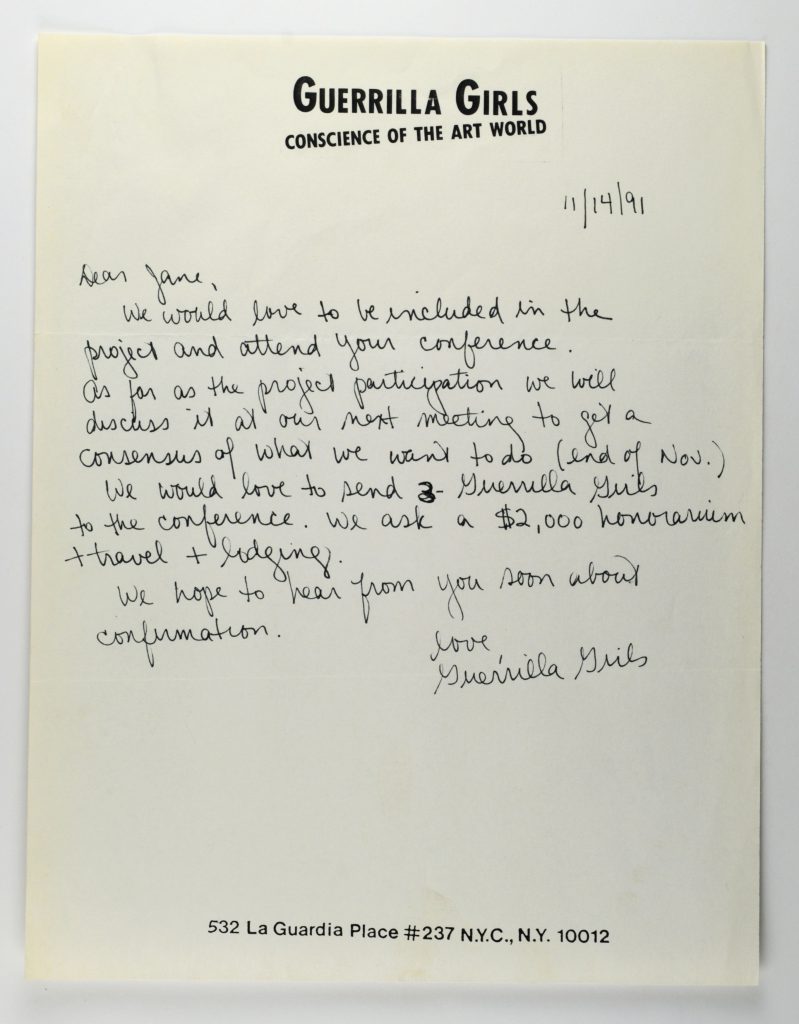 GUERRILLA GIRLS
CONSCIENCE OF THE ART WORLD
11/14/91
Dear Jane,
We would love to be included in the
project and attend your conference.
As far as the project participation we will
discuss it at our next meeting to get a
consensus of what we want to do (end of Nov.)
We would love to send 3- Guerrilla Girls
to the conference. We ask a $2,000 honorarium
+ travel + lodging.
We hope to hear from you soon about
confirmation.
love,
Guerrilla Girls
532 La Guardia Place #237 N.Y.C., N.Y. 10012